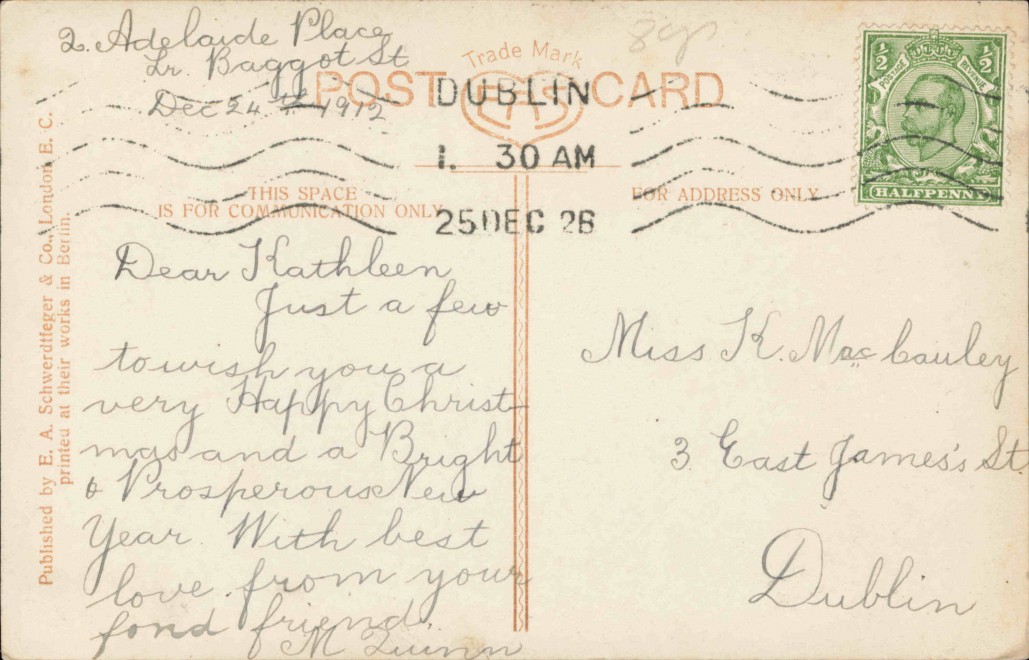 2. Adelaide Place
Lr. Baggot St
Dec 24th 1912
Trade Mark
POST CARD
DUBLIN
1. 30 AM
25 DEC
½ ½
POSTAGE REVENUE
HALFPENNY
THIS SPACE
IS FOR COMMUNICATION ONLY
FOR ADDRESS ONLY
Published by E. A. Schwerdtfeger & Co., London E. C.
printed at their works in Berlin.
Dear Kathleen
Just a few
to wish you a
very Happy Christ-
mas and a Bright
& Prosperous New
Year. With best
love from your
fond friend.
M Quinn
Miss K. Mac Cauley
3 East James's St.
Dublin